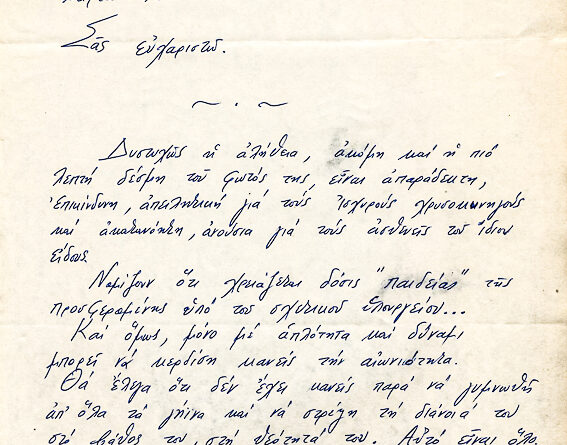 Σᾶς εὐχαριστῶ.
~ . ~
Δυστυχῶς ἡ ἀλήθεια, ἀκόμη καί ἡ πιό
λεπτή δέσμη τοῦ φωτός της, εἶναι ἀπαράδεκτη,
ἐπικίνδυνη, ἀπειλητική γιά τούς ἰσχυρούς χρυσοκυνηγούς
καί ἀκατανόητη, ἀνούσια γιά τούς ἀσθενεῖς τοῦ ἰδίου
εἴδους.
Νομίζουν ὅτι χρειάζεται δόσις "παιδείας" τῆς
προσφερομένης ὑπό τοῦ σχετικοῦ ὑπουργείου...
Καί ὅμως, μόνο μέ ἁπλότητα καί δύναμι
μπορεῖ νά κερδίση κανείς τήν αἰωνιότητα.
Θά ἔλεγα ὅτι, δέν ἔχει κανείς παρά νά γυμνωθῆ
ἀπ' ὅλα τά γήινα καί νά στρέψη τή διάνοιά του
στό βάθος του, στή θεότητά του. Αὐτό εἶναι ὅλο